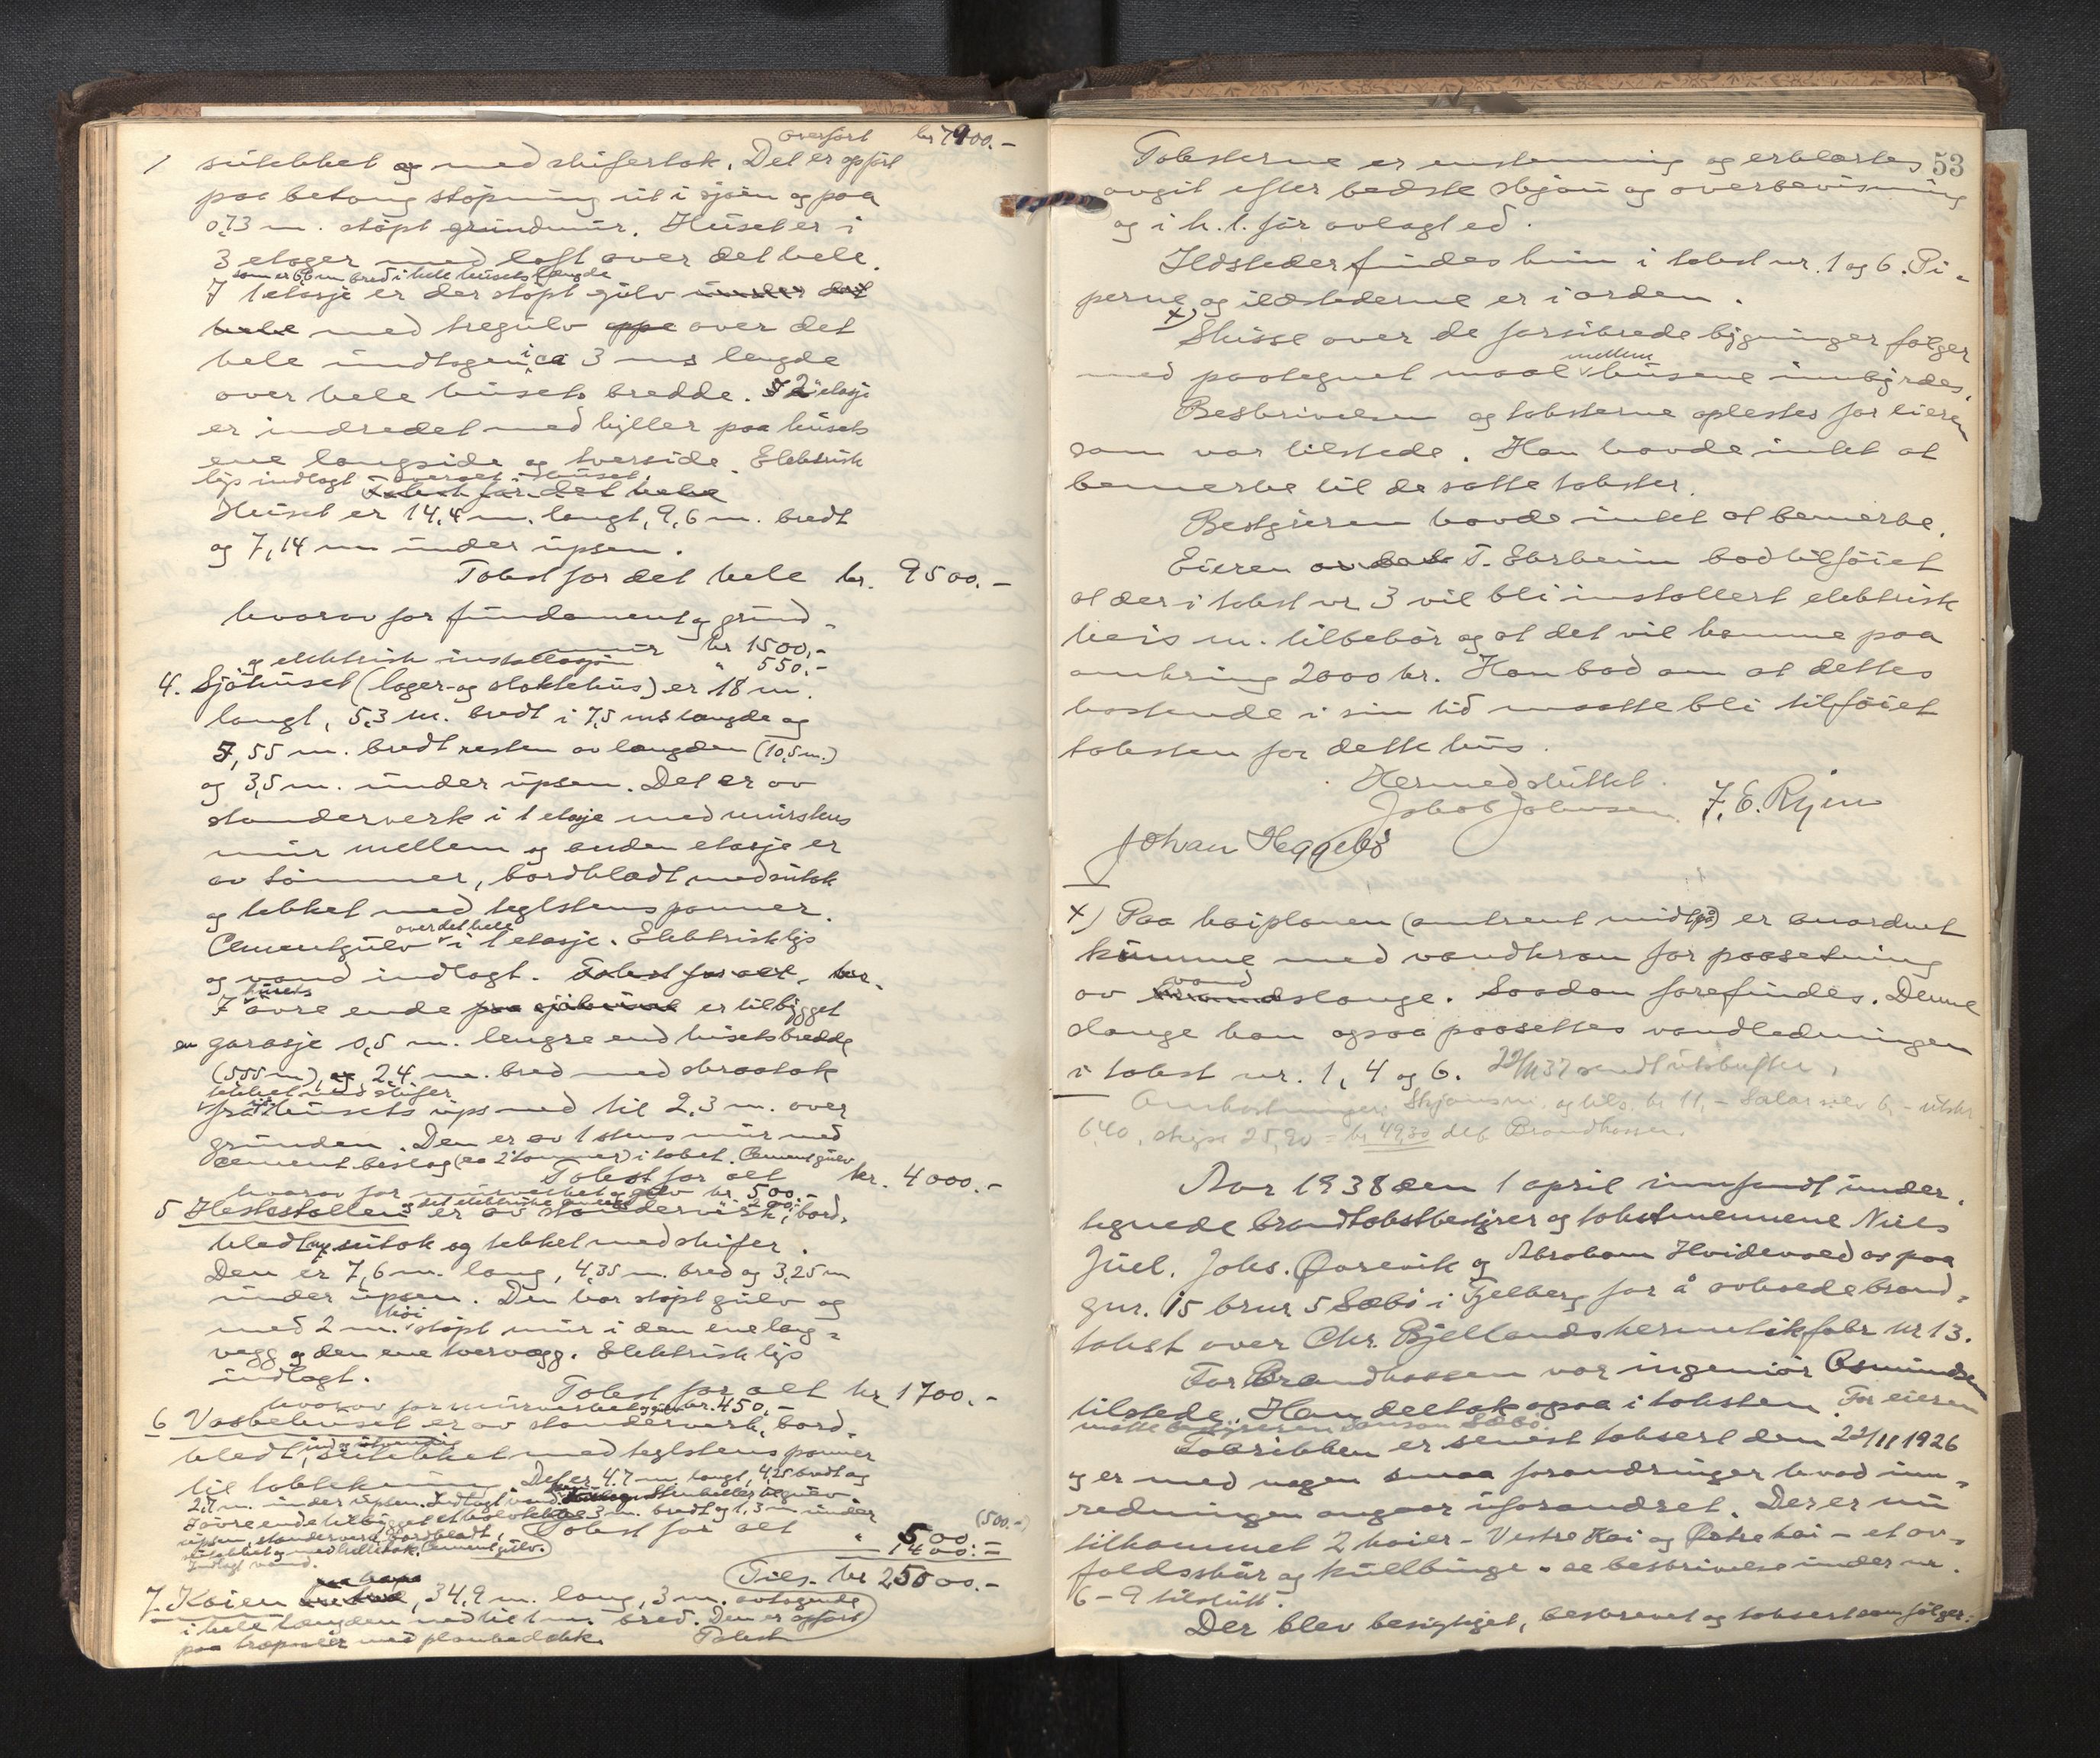 overført kr 7900.-
1 sutekket og med skifertak. Det er opført
paa betong støpning ut i sjøen og paa
0,73 m. støpt grundmur. Huset er i
3 etager med loft over det hele.
som er 6,6 m bred i hele husets længde
I 1 etasje er der støpt gulv under det
hele med tregulv oppe over det
hele undtagen i ca 3 ms lengde
over hele husets bredde. I 2 etasje
er indredet med hyller paa husets
ene langside og tverside. Elektrisk
lys indlagt overalt i huset.
Takst for det hele
Huset er 14,4 m. langt, 9,6 m. bredt
og 7,14 m under upsen.
Takst for det hele kr. 9500.-
hvorav for fundament og grund-
mur kr 1500,-
og elektrisk installasjon " 550,-
4. Sjøhuset (lager- og slaktehus) er 18 m.
langt, 5,3 m. bredt i 7,5 ms længde og
5,55 m. bredt resten av længden (10,5 m.)
og 3,5 m. under upsen. Det er av
standerverk i 1 etasje med murstens
mur mellem og anden etasje er
av tømmer, bordklædt, med sutak
og tekket med teglstenspanner.
over det hele
Cementgulv i 1 etasje. Elektrisk lys
og vand indlagt. Takst for alt, kr.
husets
I øvre ende paa sjøhuset er tilbygget
en garasje 0,5 m. lengre end husets bredde
(5,55 m), og 2,4 m. bred med skraatak
tekket med skifer
fra husets ups ned til 2,3 m. over
grunden. Den er av 1 stens mur med
cement beslag (ca 2 tommer) i taket. Cementgulv
Takst for alt kr. 4000.-
hvorav for murverket og gulv kr. 500.-
og det elektriske anlæg 200.-
5 Hestestallen er av standerverk, bord-
klædt, sutak og tekket med skifer.
Den er 7,6 m. lang, 4,35 m. bred og 3,25 m
under upsen. Den har støpt gulv og
høi
med 2 m. støpt mur i den ene lang-
vegg og den ene tvervægg. Elektrisk lys
indlagt.
Takst for alt kr 1700.-
hvorav for murverket og gulv kr. 450.-
6 Vaskehuset er av standerverk, bord-
klædt, ind og utvendig
sutekket med teglstens panner
til taktekning. Det er 4.7 m. langt, 4,25 bredt og
2,7 m. under upsen. Indlagt vand. Stenheller til gulv
I øvre ende tilbygget et 3 m. bredt og 1,3 m under
upsen, standerverk, bordklædt, Takst for alt " 500 (500.-)
sutekket og med helletak. Cementgulv. 1400.-
Indlagt vand.
Tils. kr 25500.-
7. Kaien , 34,9 m. lang, 3 m. avtagende
i hele længden ned til 1 m. bred. Den er opført
paa træpæler med plankedekk. Takst
53
Taksterne er enstemmig og erklærtes
avgit efter bedste skjøn og overbevisning
og i h. t. før avlagt ed.
Ildsteder findes kun i takst nr. 1 og 6. Pi-
perne og ildstederne er i orden.
x)
Skisse over de forsikrede bygninger følger
mellem
med paategnet maal husene innbyrdes.
Beskrivelsen og taksterne oplestes for eieren
som var tilstede. Han havde intet at
bemerke til de satte takster.
Bestyreren havde intet at bemerke.
Eieren T. Ebrheim bad tilføiet
at der i takst nr 3 vil bli installert elektrisk
heis m. tilbehør og at det vil komme paa
omkring 2000 kr. Han bad om at dettes
kostende i sin tid maatte bli tilføiet
taksten for dette hus.
Hermed sluttet.
Jakob Johnsen. F. E. Rijm
Johan Heggebø
x) Paa kaiplanen (omtrent midtpå) er anordnet
kumme med vandkran for paasetning
vand
av slange. Saadan forefindes. Denne
slange kan ogsaa paasettes vandledningen
i takst nr. 1, 4 og 6. 22/11 37 sendt utskrifter.
Omkostninger: Skjønsm. og tils. kr 11,- Salar selv 6,- utskr
6,40, skyss 25,90 = kr 49,30 deb Brandkassen.
Aar 1938 den 1 april innfandt under-
tegnede brandtakstbestyrer og takstmennene Niels
Juel. Johs. Qvarevik og Abraham Hvidevold os paa
gnr. 15 brnr 5 Sæbø i Fjelberg for å avholde brand-
takst over Chr. Bjellands hermetikfabr nr 13.
For Brandkassen var ingeniør Osmundsen
tilstede. Han deltok ogsaa i taksten. For eieren
møtte bestyreren Simon Sæbø
Fabrikken er senest taksert den 22/11 1926
og er med nogen smaa forandringer hvad inn-
redningen angaar uforandret. Der er nu
tilkommet 2 kaier - Vestre Kai og Østre kai - et av-
faldsskur og kullbinge - se beskrivelse under nr.
6 - 9 tilslutt.
Der blev besigtiget, beskrevet og taksert som følger: